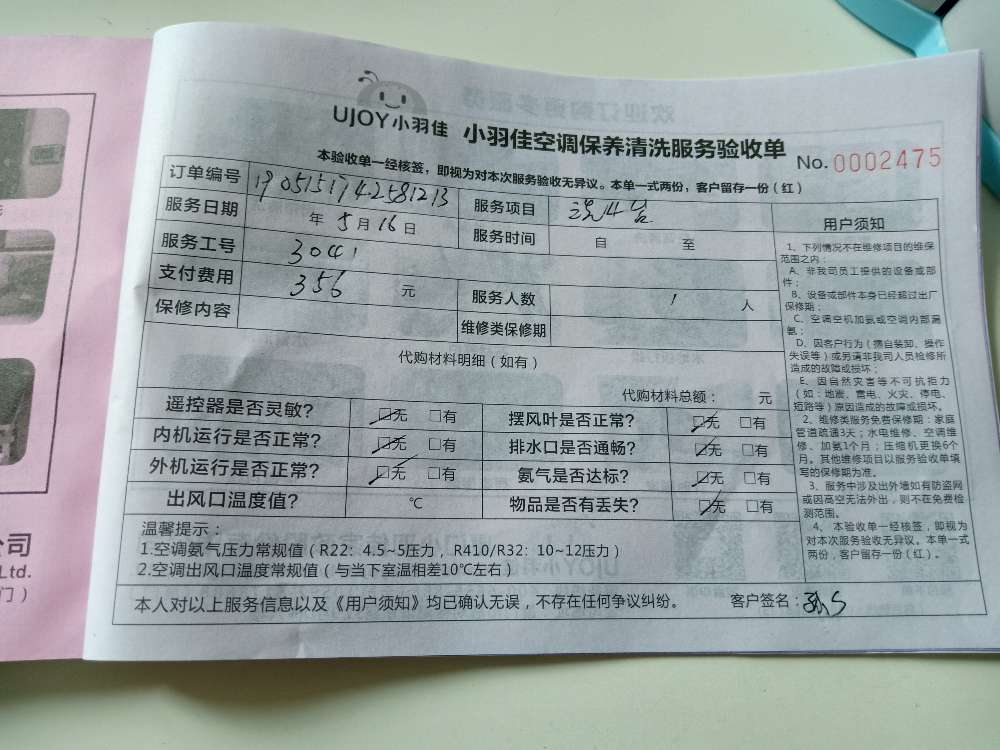 UJOY小羽佳 小羽佳空调保养清洗服务验收单 No.0002475
本验收单一经核签，即视为对本次服务验收无异议。本单一式两份，客户留存一份（红）
订单编号 19051517942581213 服务项目
服务日期 年5月16日 服务时间 自 至
服务工号 3041
支付费用 356 元 服务人数 1 人
保修内容 维修类保修期
代购材料明细（如有）
代购材料总额： 元
遥控器是否灵敏？ □无 □有 摆风叶是否正常？ □无 □有
内机运行是否正常？ □无 □有 排水口是否通畅？ □无 □有
外机运行是否正常？ □无 □有 氨气是否达标？ □无 □有
出风口温度值？ ℃ 物品是否有丢失？ □无 □有
温馨提示：
1.空调氨气压力常规值（R22：4.5~5压力，R410/R32：10~12压力）
2.空调出风口温度常规值（与当下室温相差10℃左右）
本人对以上服务信息以及《用户须知》均已确认无误，不存在任何争议纠纷。 客户签名：
用户须知
1、下列情况不在维修项目的维保
范围之内：
A、非我司员工提供的设备或部
件；
B、设备或部件本身已经超过出厂
保修期；
C、空调空机加氨或空调内部漏
氨；
D、因客户行为（擅自装卸、操作
失误等）或另请非我司人员检修所
造成的故障或损坏；
E、因自然灾害等不可抗拒力
（如：地震、雷电、火灾、停电、
短路等）原因造成的故障或损坏。
2、维修类服务免费保修期：家庭
管道疏通3天；水电维修、空调维
修、加氨1个月；压缩机更换6个
月。其他维修项目以服务验收单填
写的保修期为准。
3、服务中涉及出外墙如有防盗网
或因高空无法外出，则不在免费检
测范围。
4、本验收单一经核签，即视为
对本次服务验收无异议。本单一式
两份，客户留存一份（红）。
公司
Ltd.
门）